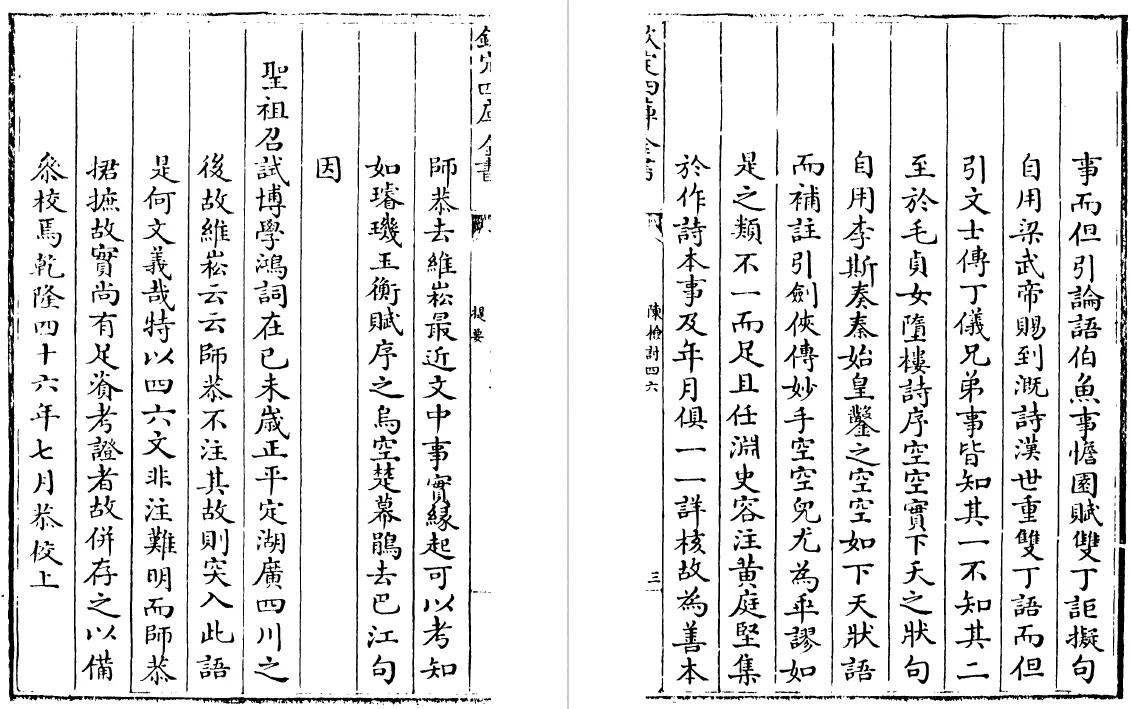 事而但引論語伯魚事憺園賦雙丁詎擬句
自用梁武帝賜到溉詩漢世重雙丁語而但
引文士傳丁儀兄弟事皆知其一不知其二
至於毛貞女墮樓詩序空空實下天之狀句
自用李斯奏秦始皇鑿之空空如下天狀語
而補註引劍俠傳妙手空空兒尤為乖謬如
是之類不一而足且任淵史容注黄庭堅集
於作詩本事及年月俱一一詳核故為善本
欽定四庫全書
陳檢討四六
三
欽定四庫全書
提要
師恭去維崧最近文中事實緣起可以考知
如璿璣玉衡賦序之烏空楚幕鵑去巴江句
因
聖祖召試博學鴻詞在己未嵗正平定湖廣四川之
後故維崧云云師恭不注其故則突入此語
是何文義哉特以四六文非注難明而師恭
捃摭故實尚有足資考證者故併存之以備
叅校焉乾隆四十六年七月恭校上